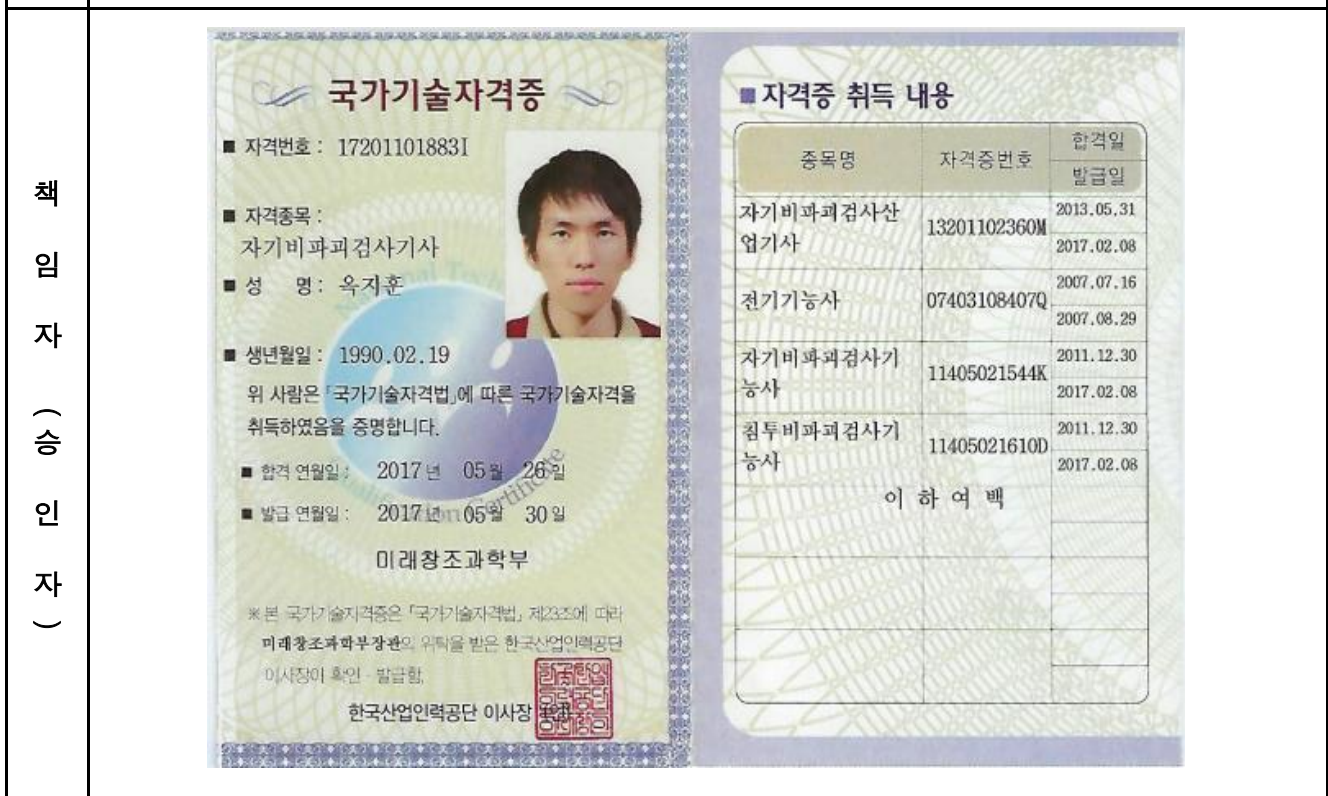 책임자(승인자)
국가기술자격증
■ 자격번호 : 17201101883I
■ 자격종목 :
자기비파괴검사기사
■ 성 명 : 옥지훈
■ 생년월일 : 1990.02.19
위 사람은 「국가기술자격법」에 따른 국가기술자격을
취득하였음을 증명합니다.
■ 합격 연월일 : 2017년 05월 26일
■ 발급 연월일 : 2017년 05월 30일
미래창조과학부
※ 본 국가기술자격증은 「국가기술자격법」 제23조에 따라
미래창조과학부장관의 위탁을 받은 한국산업인력공단
이사장이 확인 · 발급함.
한국산업인력공단 이사장
■ 자격증 취득 내용
종목명 자격증번호 합격일
발급일
자기비파괴검사산업기사 13201102360M 2013.05.31
2017.02.08
전기기능사 07403108407Q 2007.07.16
2007.08.29
자기비파괴검사기능사 11405021544K 2011.12.30
2017.02.08
침투비파괴검사기능사 11405021610D 2011.12.30
2017.02.08
이 하 여 백